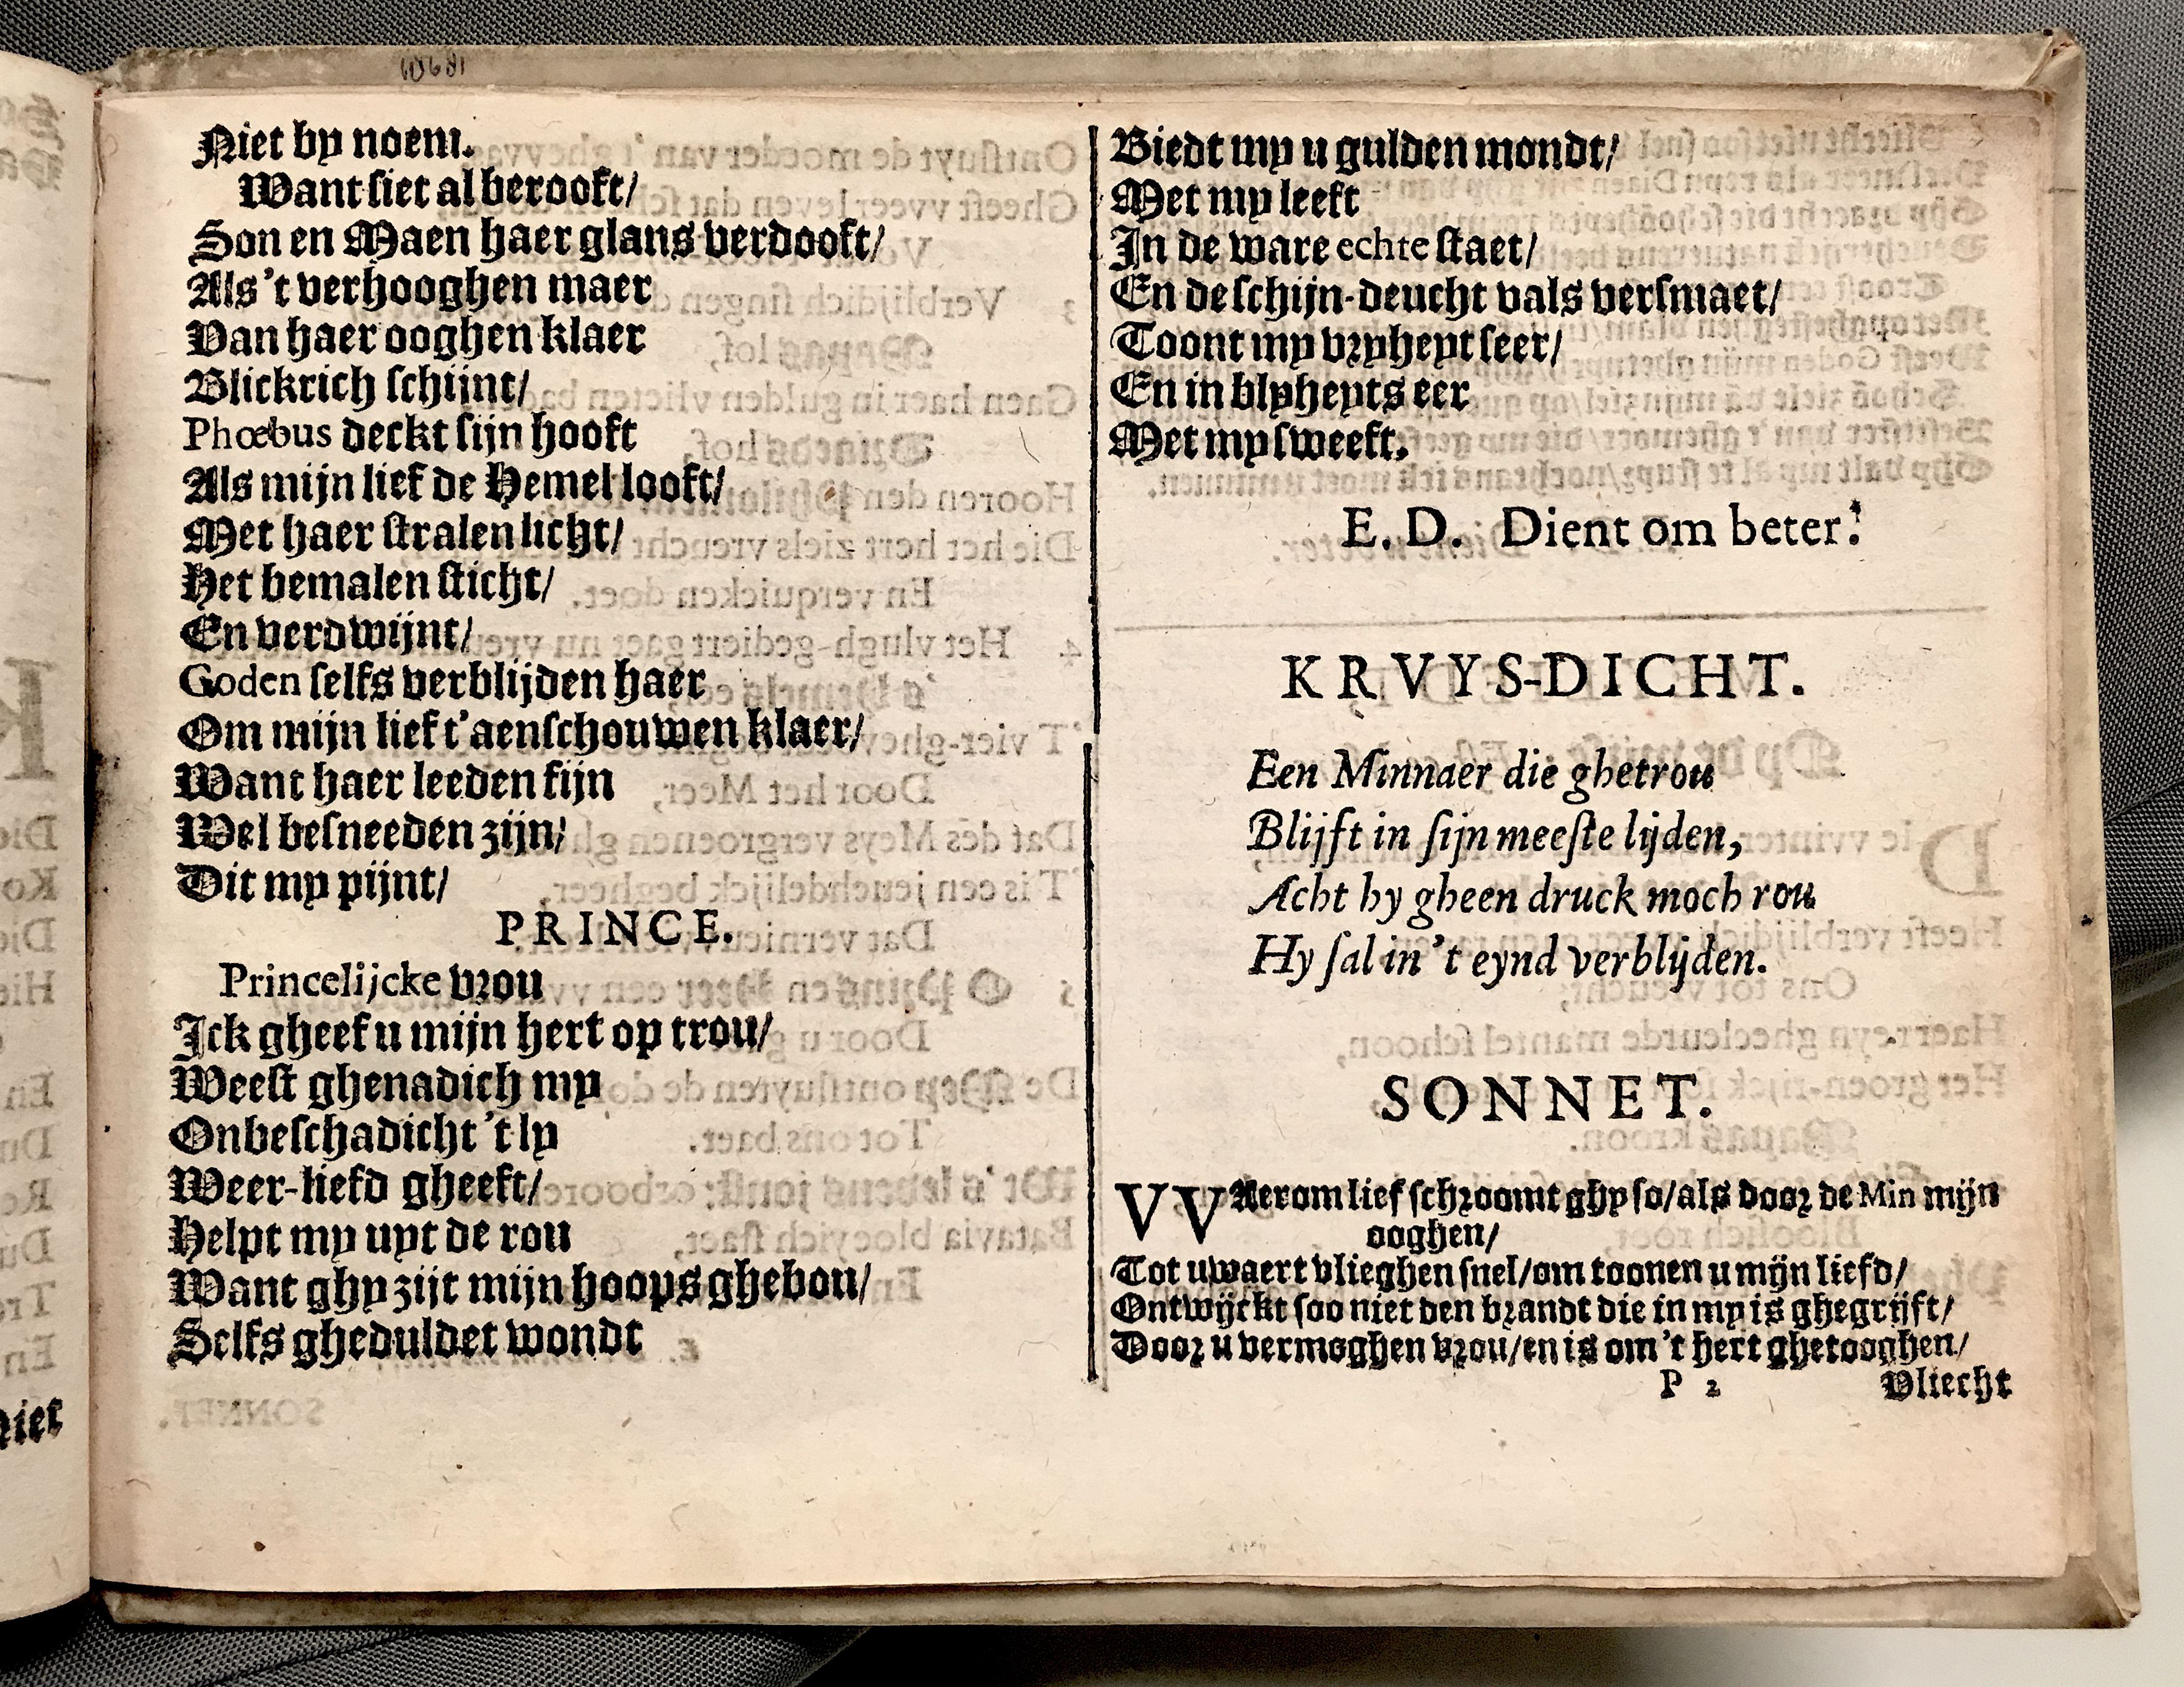 Niet by noem.
Want siet al berooft/
Son en Maen haer glans verdooft/
Als 't verhooghen maer
Van haer ooghen klaer
Blickrich schijnt/
Phœbus deckt sijn hooft
Als mijn lief de Hemel looft/
Met haer stralen licht/
Het bemalen sticht/
En verdwijnt/
Goden selfs verblijden haer
Om mijn lief t'aenschouwen klaer/
Want haer leeden fijn
Wel besneeden zijn/
Dit my pijnt/
PRINCE.
Princelijcke vrou
Ick gheef u mijn hert op trou/
Weest ghenadich my
Onbeschadicht 't ly
Weer-liefd gheeft/
Helpt my uyt de rou
Want ghy zijt mijn hoops ghebou/
Selfs gheduldet wondt
Biedt my u gulden mondt/
Met my leeft
In de ware echte staet/
En de schijn-deucht vals versmaet/
Toont my vryheyt seer/
En in blyheyts eer
Met my sweeft.
E. D. Dient om beter.
KRVYS-DICHT.
Een Minnaer die ghetrou
Blijft in sijn meeste lijden,
Acht hy gheen druck moch rou
Hy sal in 't eynd verblijden.
SONNET.
VVAerom lief schroomt ghy so/als door de Min mijn
ooghen/
Tot uwaert vlieghen snel/om toonen u mijn liefd/
Ontwijckt soo niet den brandt die in my is ghegrijft/
Door u vermoghen vrou/en is om 't hert ghetooghen/
P 2 Vliecht